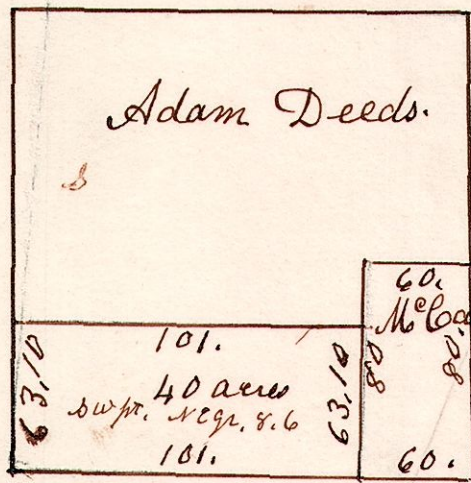 Adam Deeds.
s
60.
McCo
80
80
60.
101.
63,10
63,10
40 acres
SW pt. NE qr. 8.6
101.